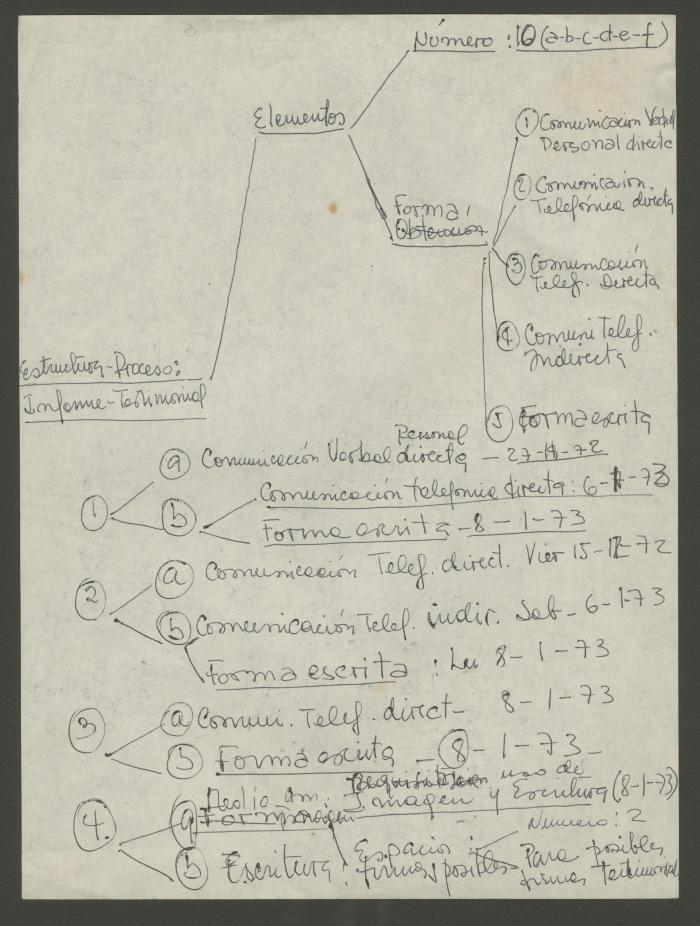 Número : 10 (a-b-c-d-e-f)
Elementos
① Comunicación Verbal
Personal directa
2 Comunicación.
Telefónica directa
Forma,
Obtencion
③ Comunicación
Telef. Directa
④ Comuni Telef.
Indirecta
Estructura-Proceso:
Informe-Testimonial
⑤ Forma escrita
Personal
ⓐ Comunicación Verbal directa - 27-11-72
① ⓑ Comunicación telefonica directa: 6-1-73
Forma escrita - 8-1-73
② ⓐ Comunicación Telef. direct. Vier 15-12-72
ⓑ Comunicación Telef. indir. Sab- 6-1-73
Forma escrita : Lu 8-1-73
③ ⓐ Comuni. Telef. direct- 8-1-73
ⓑ Forma escrita - 8-1-73-
uso de
Medio Imagen y Escritura (8-1-73)
④. ⓐ
Numero: 2
ⓑ Escritura: Espacios :
firmas posibles - Para posibles
firmas Testimonial.